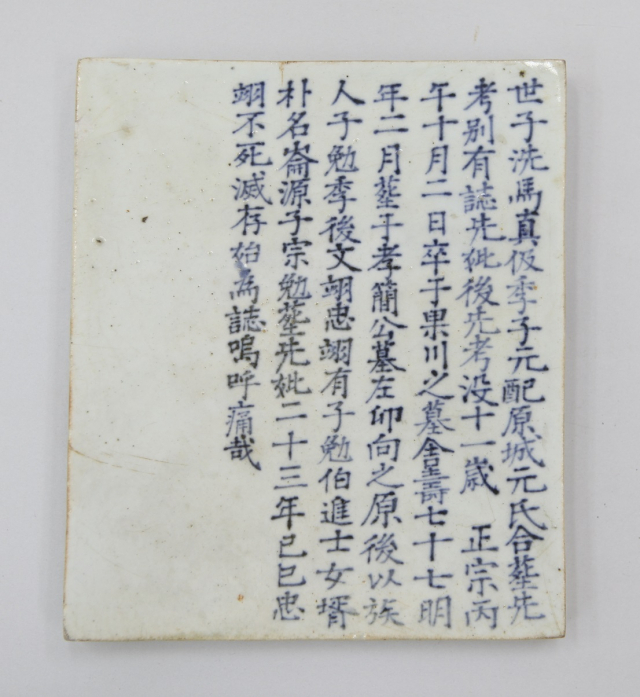 世子洗馬真伋季子元配原城元氏合塟先
考別有誌先妣後先考没十一歲 正宗丙
午十月二日卒于果川之墓舍壽七十七明
年二月塟于孝簡公墓左卯向之原後以族
人子勉季後文翊忠翊有子勉伯進士女壻
朴名崙源子宗勉塟先妣二十三年己巳忠
翊不死滅存始為誌嗚呼痛哉